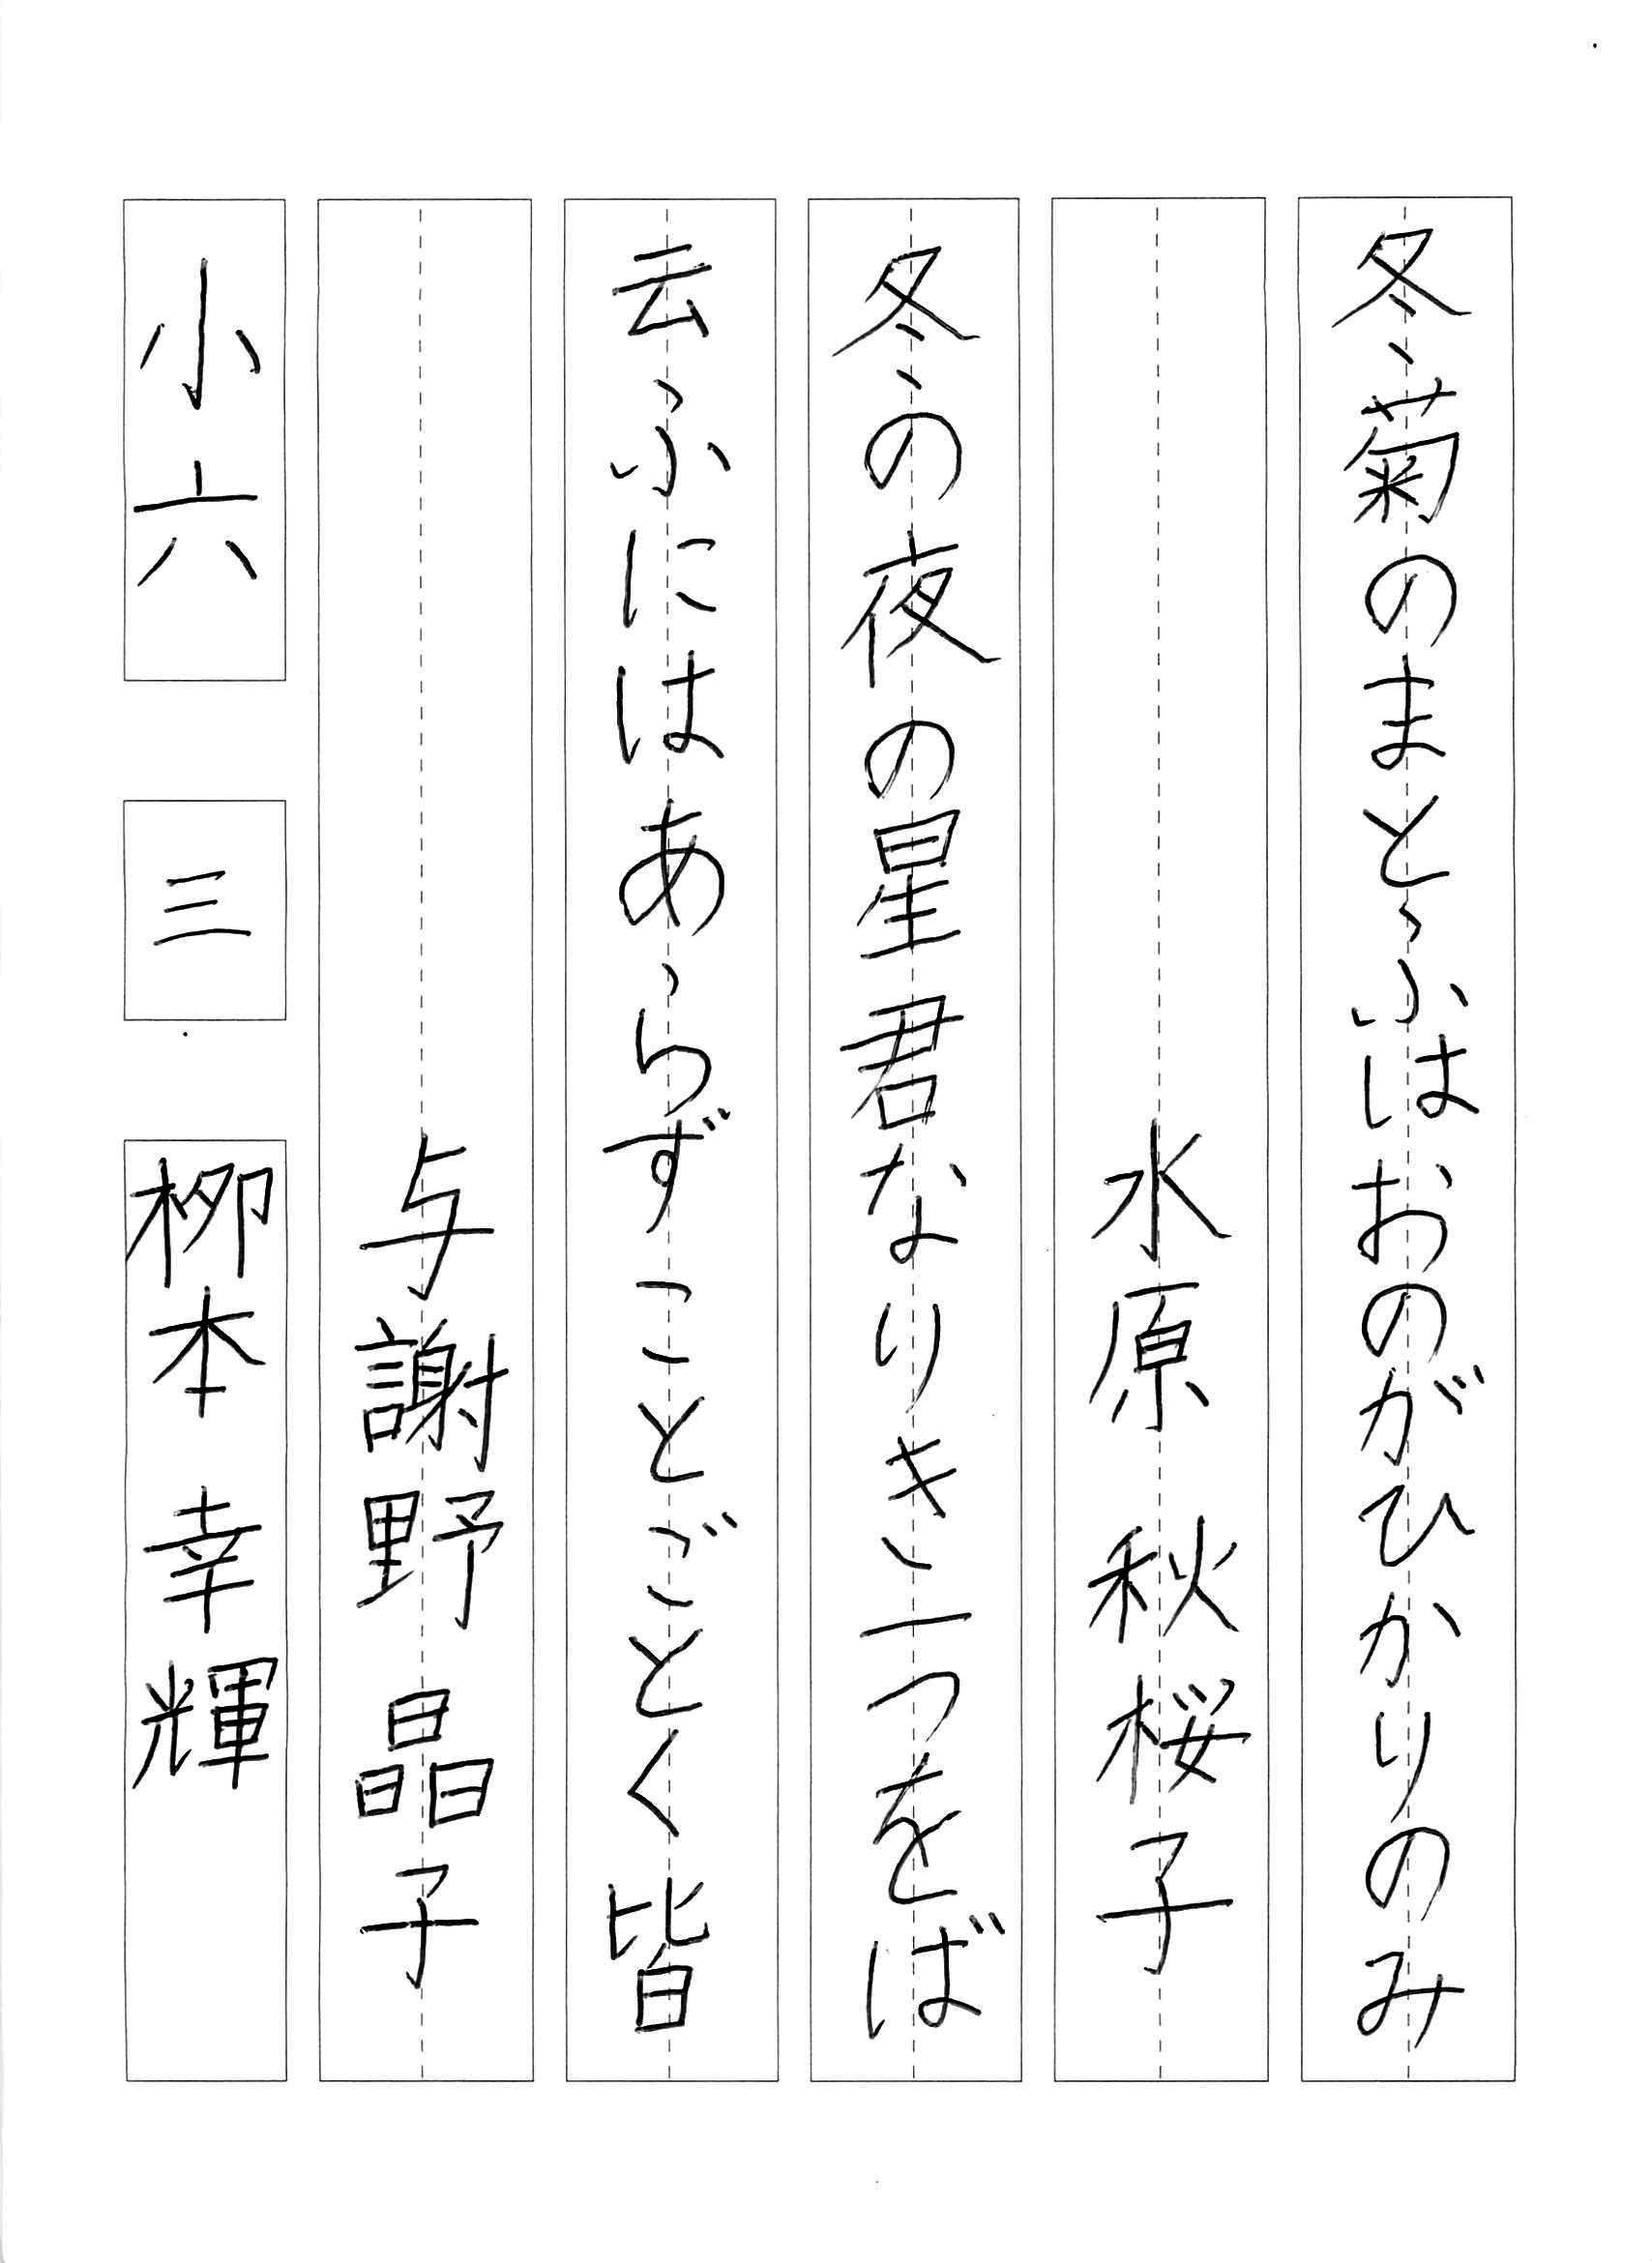 冬菊のまとふはおのがひかりのみ
水原 秋桜子
冬の夜の星君なりき一つをば
云ふにはあらずことごとく皆
与謝野 晶子
小六
三
柳本 幸輝